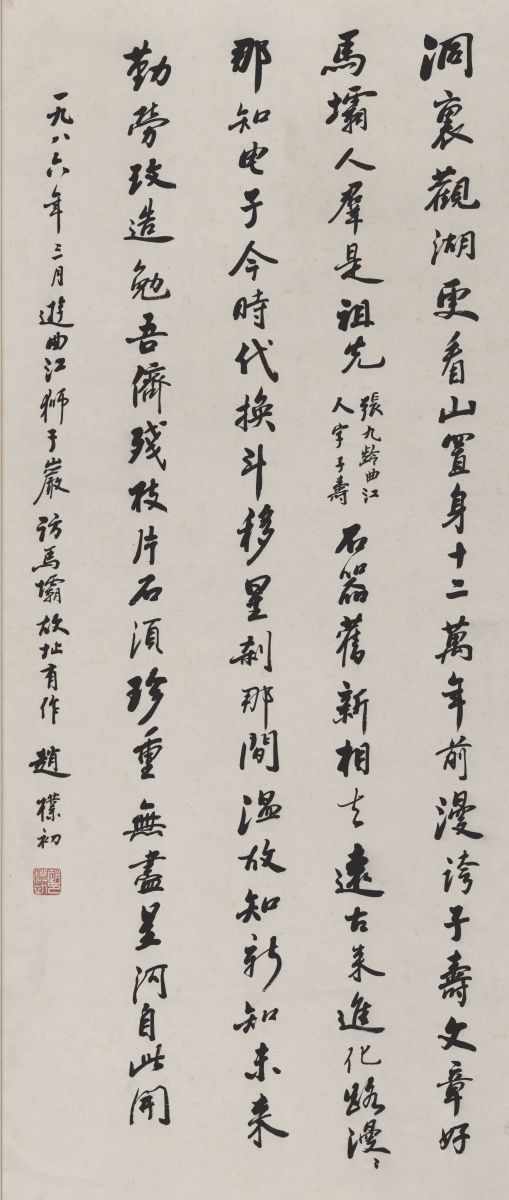 洞裏觀湖更看山置身十二萬年前漫誇子壽文章好
馬壩人羣是祖先
張九齡曲江
人字子壽
石器舊新相去遠古来進化路漫〻
那知电子今時代換斗移星剎那間溫故知新知未来
勤勞改造勉吾儕殘枝片石須珍重無盡星河自此開
一九八六年三月遊曲江獅子巖訪馬壩故址有作 趙樸初